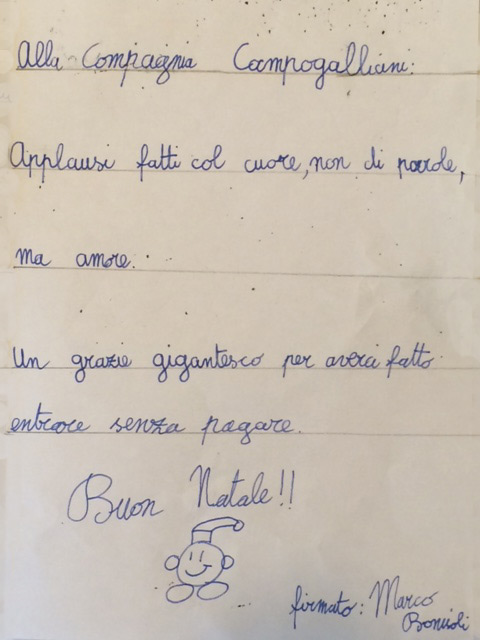 Alla Compagnia Campogalliani:
Applausi fatti col cuore, non di parole,
ma amore.
Un grazie gigantesco per averci fatto
entrare senza pagare.
Buon Natale!!
firmato: Marco